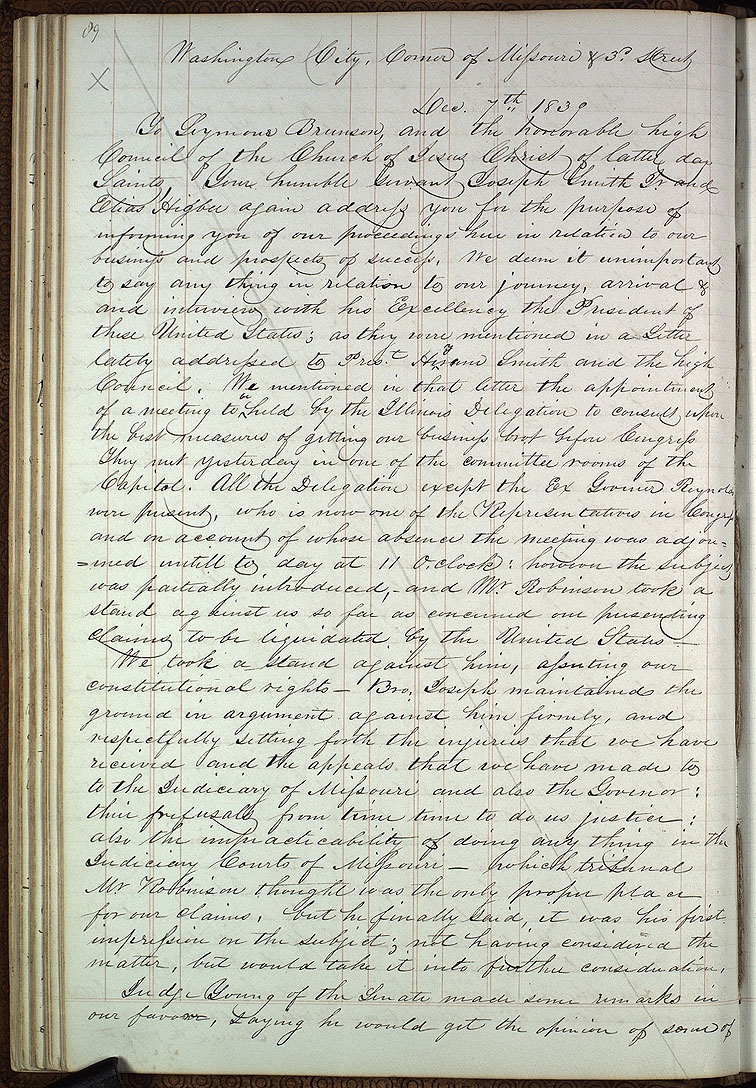 89
Washington City, Corner of Missouri & 3d. Street
X
Dec. 7th 1839
To Seymour Brunson, and the honorable high
Council of the Church of Jesus Christ of latter day
Saints, Your humble Servant Joseph Smith Jr and
Elias Higbee again address you for the purpose of
informing you of our proceedings here in relation to our
business and prospects of success. We deem it unimportant
to say any thing in relation to our journey, arrival &
and interview with his Excellency the President of
these United States; as they were mentioned in a Letter
lately addressed to Prest. Hyrum Smith and the high
Council. We mentioned in that letter the appointment
of a meeting to be held by the Illinois Delegation to consult upon
the best measures of getting our business brot before Congress
They met yesterday in one of the committee rooms of the
Capitol. All the Delegation except the Ex Governer Reynolds
were present, who is now one of the Representatives in Congress
and on account of whose absence the meeting was adjou=
=rned untill to day at 11 O.clock: however the subject
was partially introduced,- and Mr Robinson took a
stand against us so far as concerned our presenting
claims to be liquidated by the United States—
We took a stand against him, asserting our
constitutional rights— Bro. Joseph maintained the
ground in argument against him firmly, and
respectfully setting forth the injuries that we have
received and the appeals that we have made to
to the Judiciary of Missouri and also the Govenor:
their refusals from time time to do us justice;
also the impracticability of doing any thing in the
Judiciary Courts of Missouri— which tribunal
Mr Robbinson thought was the only proper place
for our claims, but he finally said, it was his first
impression on the subject; not having considered the
matter, but would take it into further consideration,
Judge Young of the Senate made some remarks in
our favor, saying he would get the opinion of some of